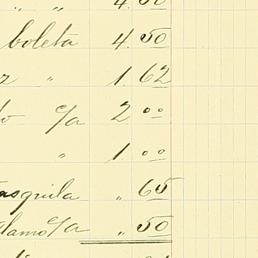 " " 4.50
boleta 4.50
" 1.62
c/a 2 00
" 1 00
asquila " 65
alamo c/a " 50